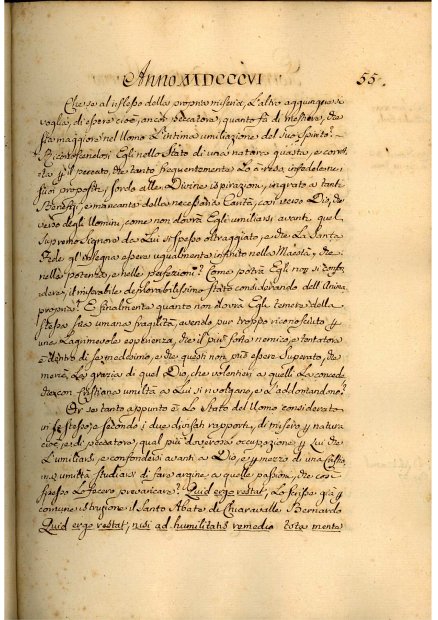 Anno MDCCCVI 55.
Che se al riflesso della propria miseria, L'altro aggiungere si
voglia, di essere cioè, anch peccatore, quanto fia di mestiere, che
sia maggiore nell Uomo L'intima umiliazione del Suo Spirito?
Riconoscendosi Egli nello Stato di una natura guasta, e corrot
ta p il peccato, che tanto frequentemente Lo à resa infedele ne
suoi propositi, sordo alle Divine ispirazioni, ingrato a tanti
Benefizj, e mancante della necessaria Carità, così verso Dio, che
verso degli Uomini, come non dovrà Egli umiliarsi avanti quel
Supremo Signore da Lui sì spesso oltraggiato, e che La Santa
Fede gl'insegna essere ugualmente infinito nella Maestà, che
nella potenza, e nelle perfezioni? Come potrà Egli non si confon
dere, il miserabile deplorabilissimo stato considerando dell Anima
propria? E finalmente quanto non dovrà Egli temere della
stessa sua umana fragilità, avendo pur troppo riconosciuto p
una Lagrimevole esperienza, che il più forte nemico, e tentatore
è dentro di se medesimo, e che questi non può essere Superato, che
mercè La grazia di quel Dio, che volentieri a quelli La concede
che con Cristiana umiltà a Lui si rivolgano, e a addomandano?
Or se tanto appunto è Lo Stato dell Uomo considerato
in se stesso, secondo i due divisati rapporti, di misero p natura
cioè, e di peccatore, qual più doverosa occupazione p Lui che
L'umiliarsi, e confondersi avanti a Dio, e p mezzo di una
ma umiltà studiarsi di fare argine a quelle passioni, che così
spesso Lo fecero prevaricare? Quid ergo restat, Lo scrisse già p
comune istruzione il Santo Abate di Chiaravalle Bernardo
Quid ergo restat, nisi ad humilitatis remedio tota mente